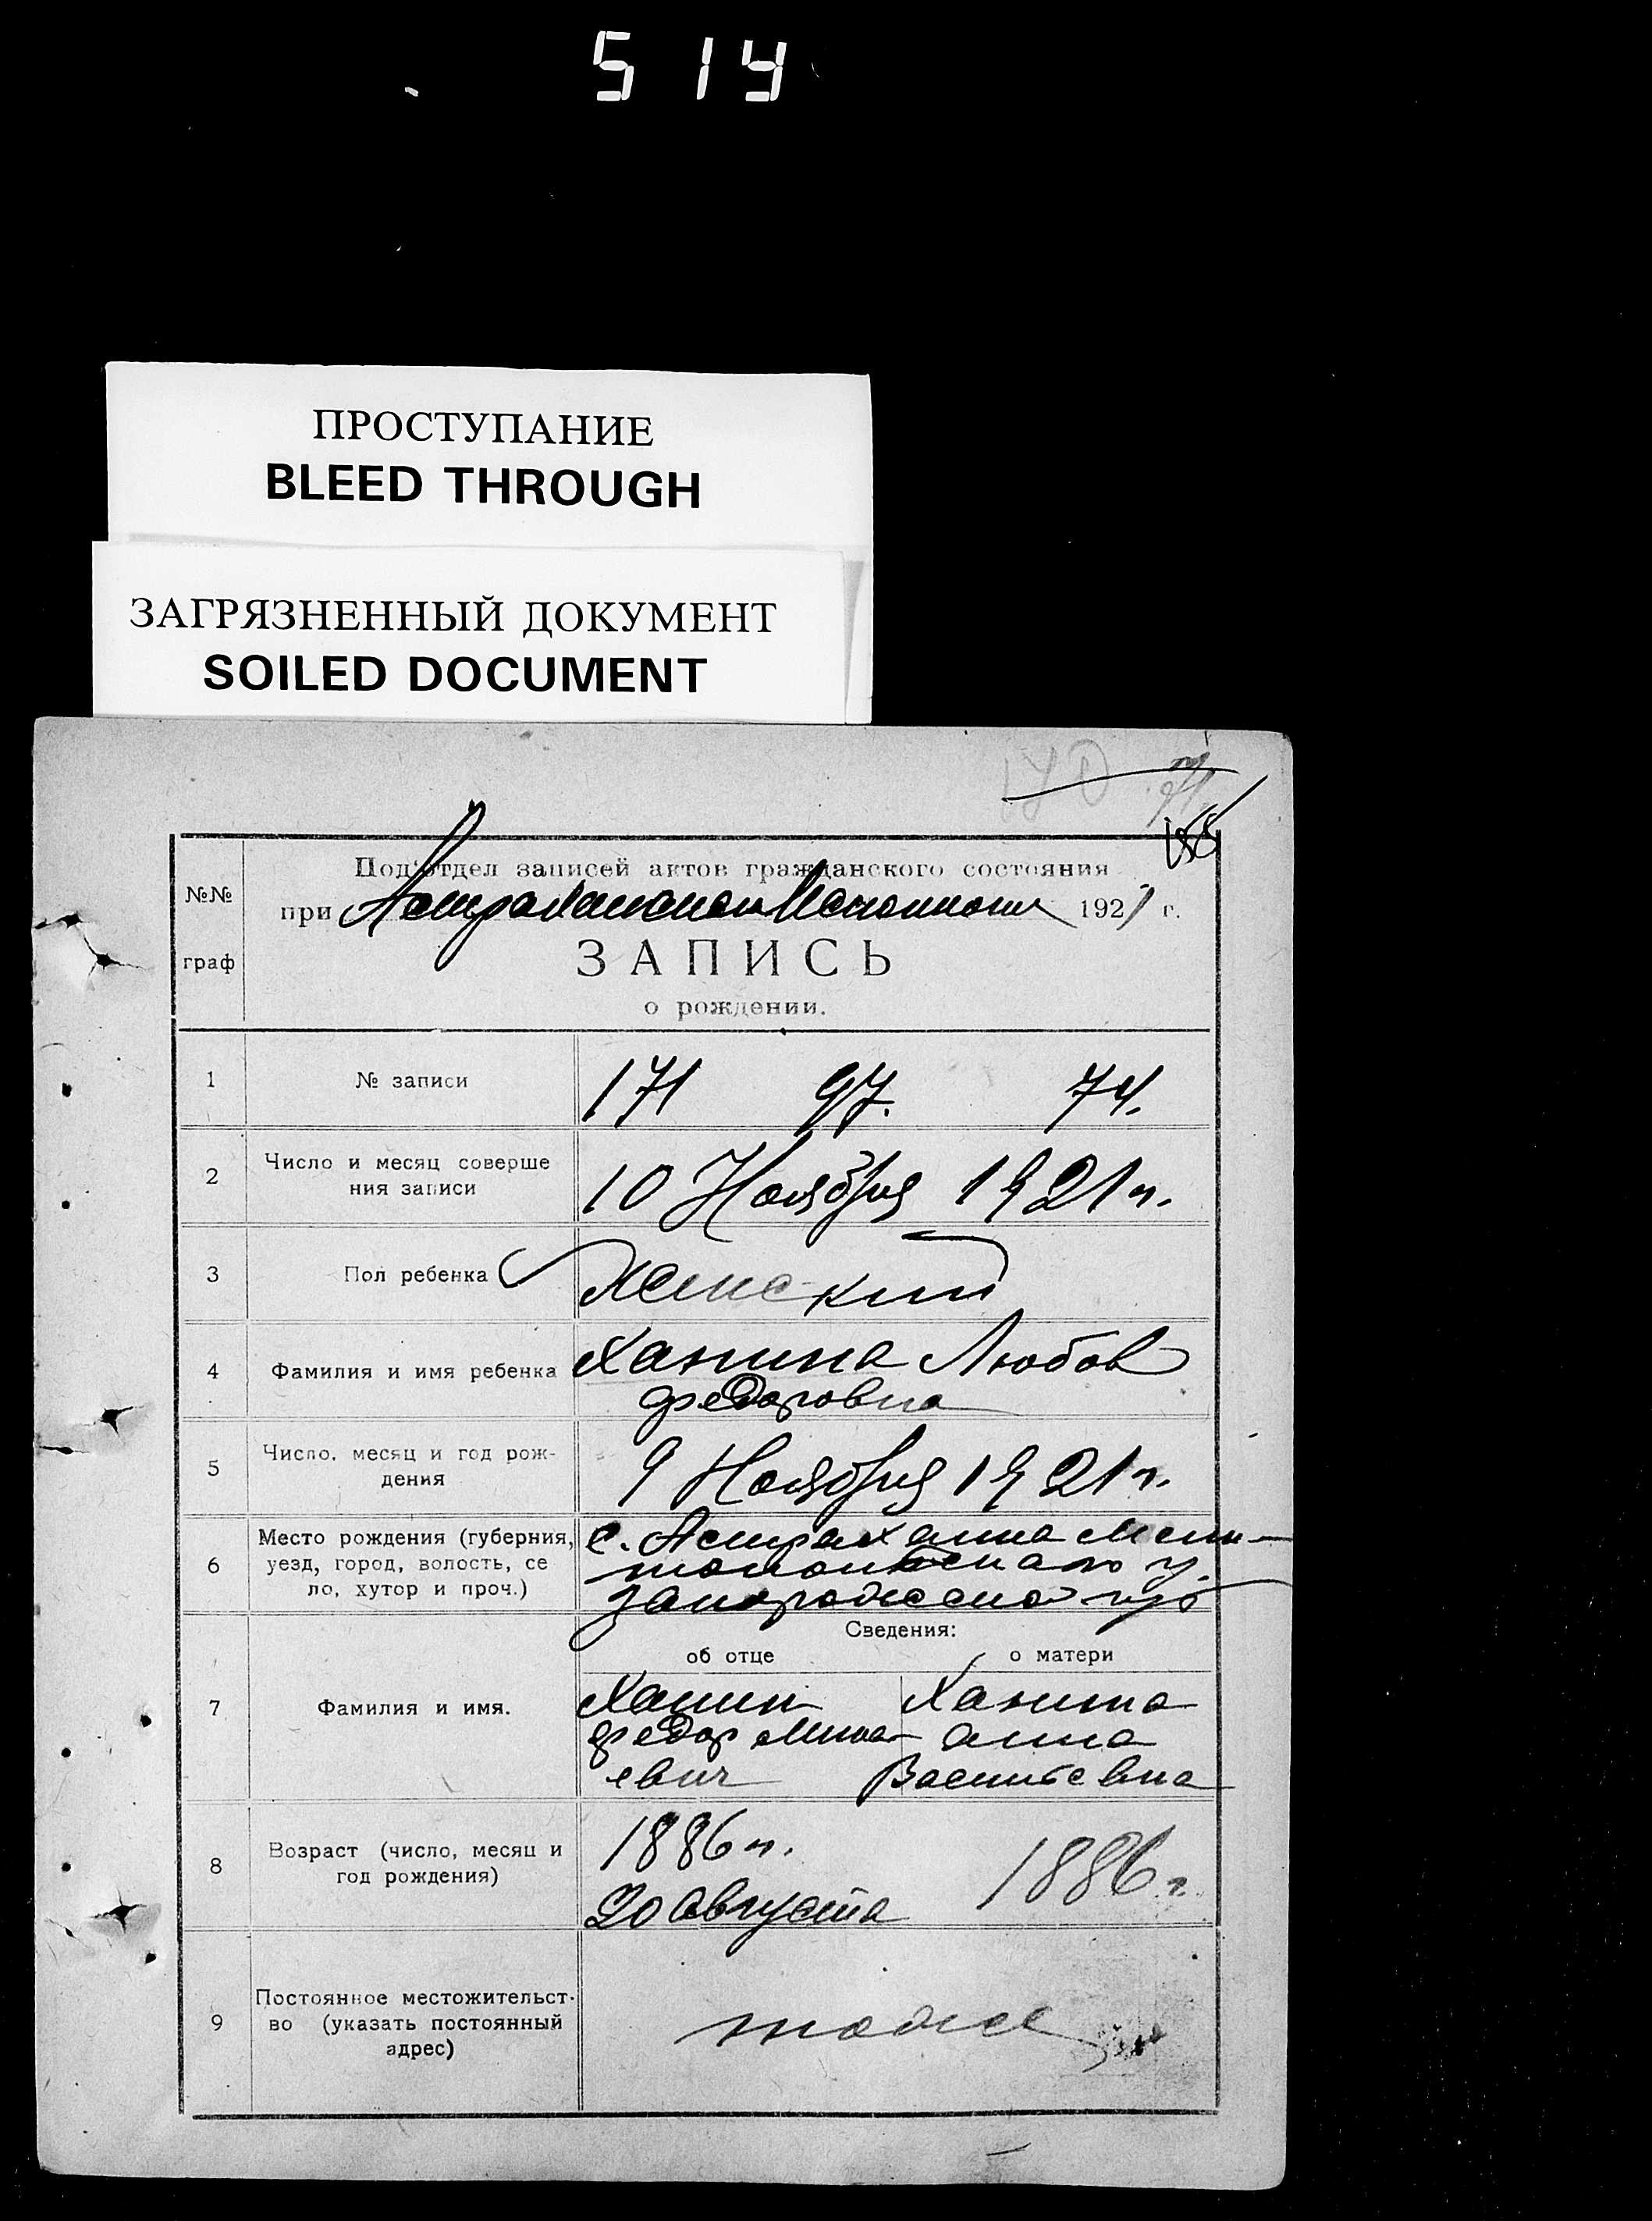 514
ПРОСТУПАНИЕ
BLEED THROUGH
ЗАГРЯЗНЕННЫЙ ДОКУМЕНТ
SOILED DOCUMENT
№№
граф
Под'отдел записей актов гражданского состояния
при Астраханском Исполкоме 1921 г.
ЗАПИСЬ
о рождении.
1 № записи 171 97. 74.
2 Число и месяц соверше
ния записи
10 Ноября 1921 г.
3 Пол ребенка Женский
4 Фамилия и имя ребенка
Ханина Любов
федоровна
5 Число, месяц и год рож-
дения
9 Ноября 1921 г.
6 Место рождения (губерния,
уезд, город, волость, се
ло, хутор и проч.)
с. Астраханка Мели-
топольскаго у.
Запорожской губ
Сведения:
об отце о матери
7 Фамилия и имя.
Ханин Ханина
федор Мина- анна
евич Васильевна
8 Возраст (число, месяц и
год рождения)
1886 г. 1886 г.
20 августа
9 Постоянное местожительст-
во (указать постоянный
адрес)
тоже